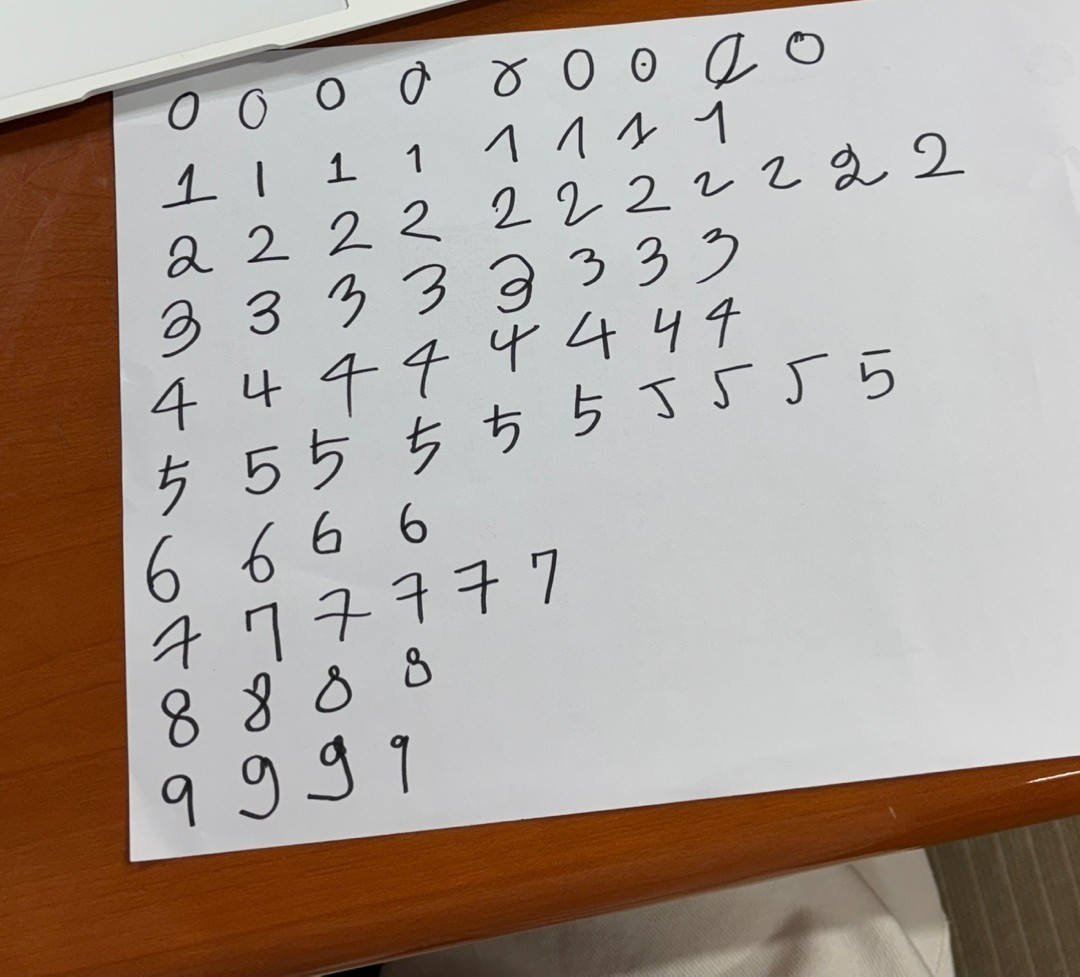 0 0 0 0 0 0 0 0 0
1 1 1 1 1 1 1 1
2 2 2 2 2 2 2 2 2 2 2
3 3 3 3 3 3 3 3
4 4 4 4 4 4 4 4
5 5 5 5 5 5 5 5 5 5
6 6 6 6
7 7 7 7 7 7
8 8 8 8
9 9 9 9